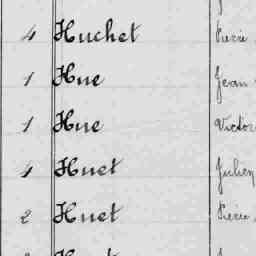 4 Huchet Pierre
1 Hue Jean
1 Hue Victor
4 Huet Julien
2 Huet Pierre